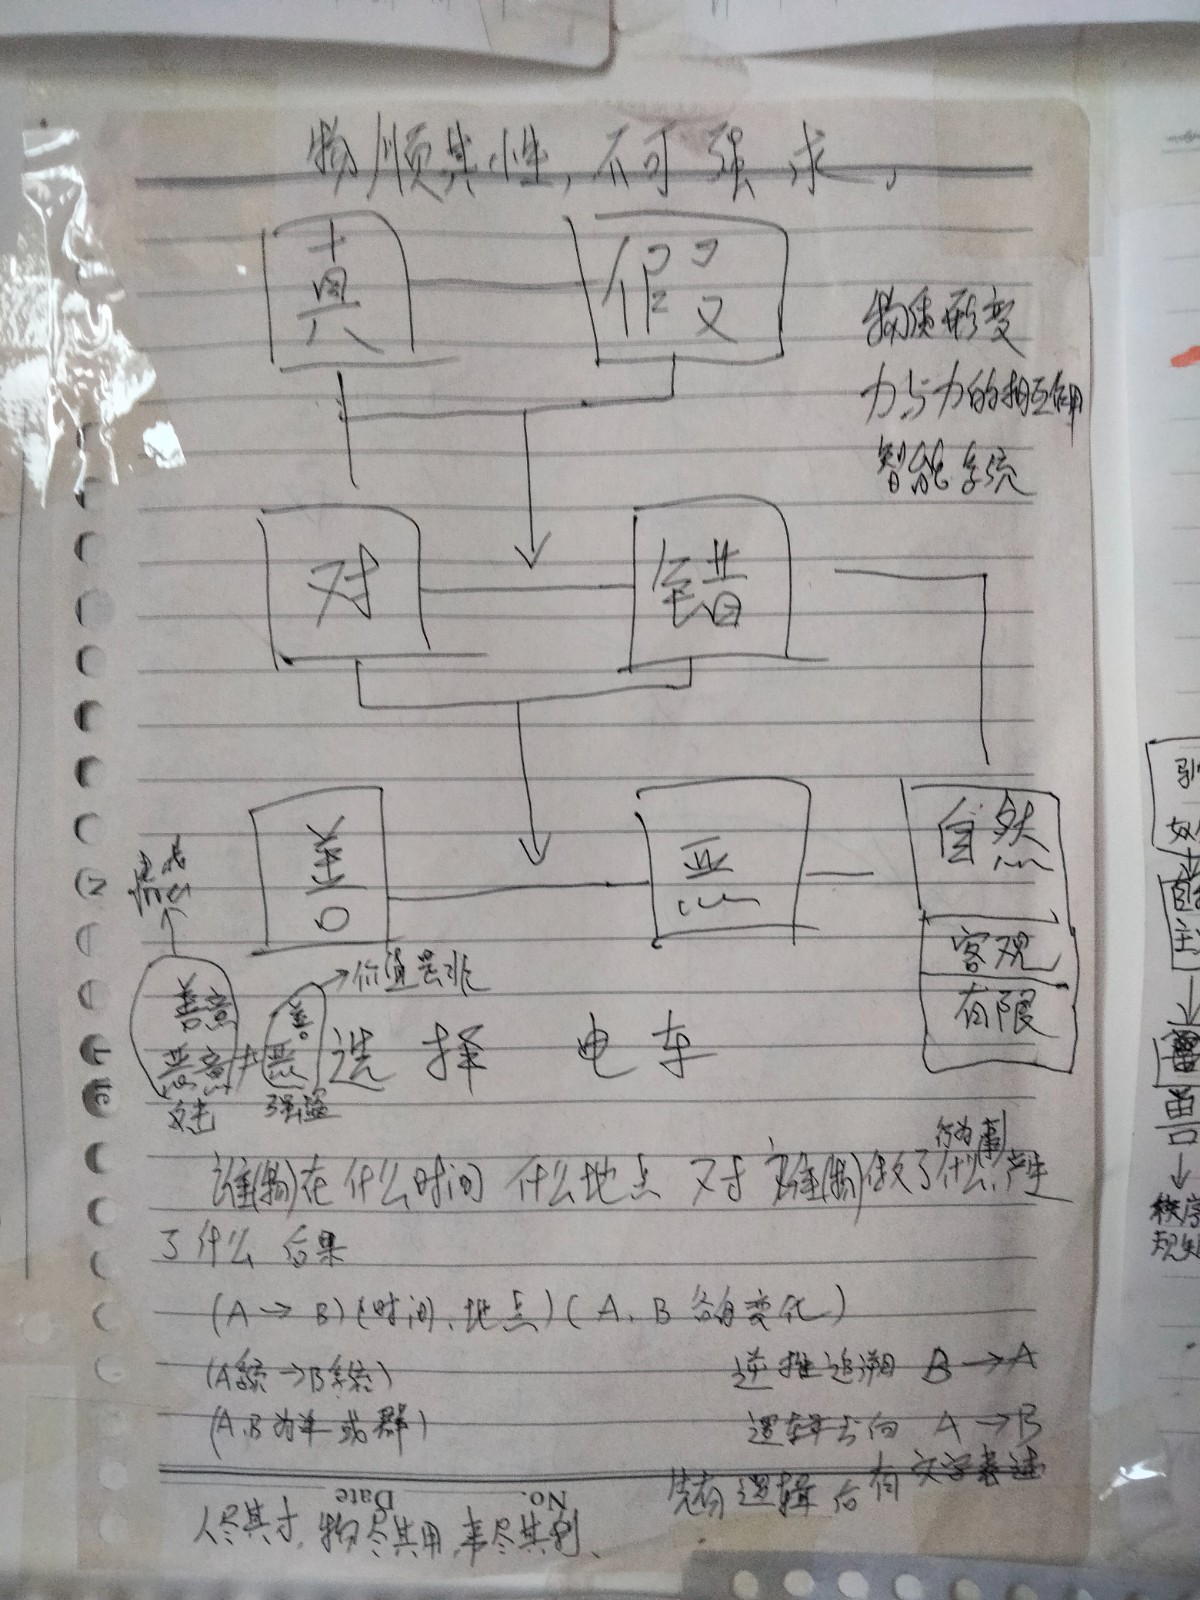 物顺其性,不可强求,
真 假
物质形变
力与力的相互作用
智能系统
对 错
善 恶 自然
客观
有限
善意 善。 →价值是非
恶意≠恶 选择 电车
攻击 强盗
行为 事
谁(物)在什么时间 什么地点 对谁(物)做了什么,产生
了什么后果
(A→B)(时间、地点)(A、B各自变化)
(A系统→B系统) 逆推追溯 B→A
(A、B为单或群) 逻辑去向 A→B
先有逻辑后有文字表述
No.
Date
人尽其才,物尽其用,事尽其利、
主
兽
↓
秩序